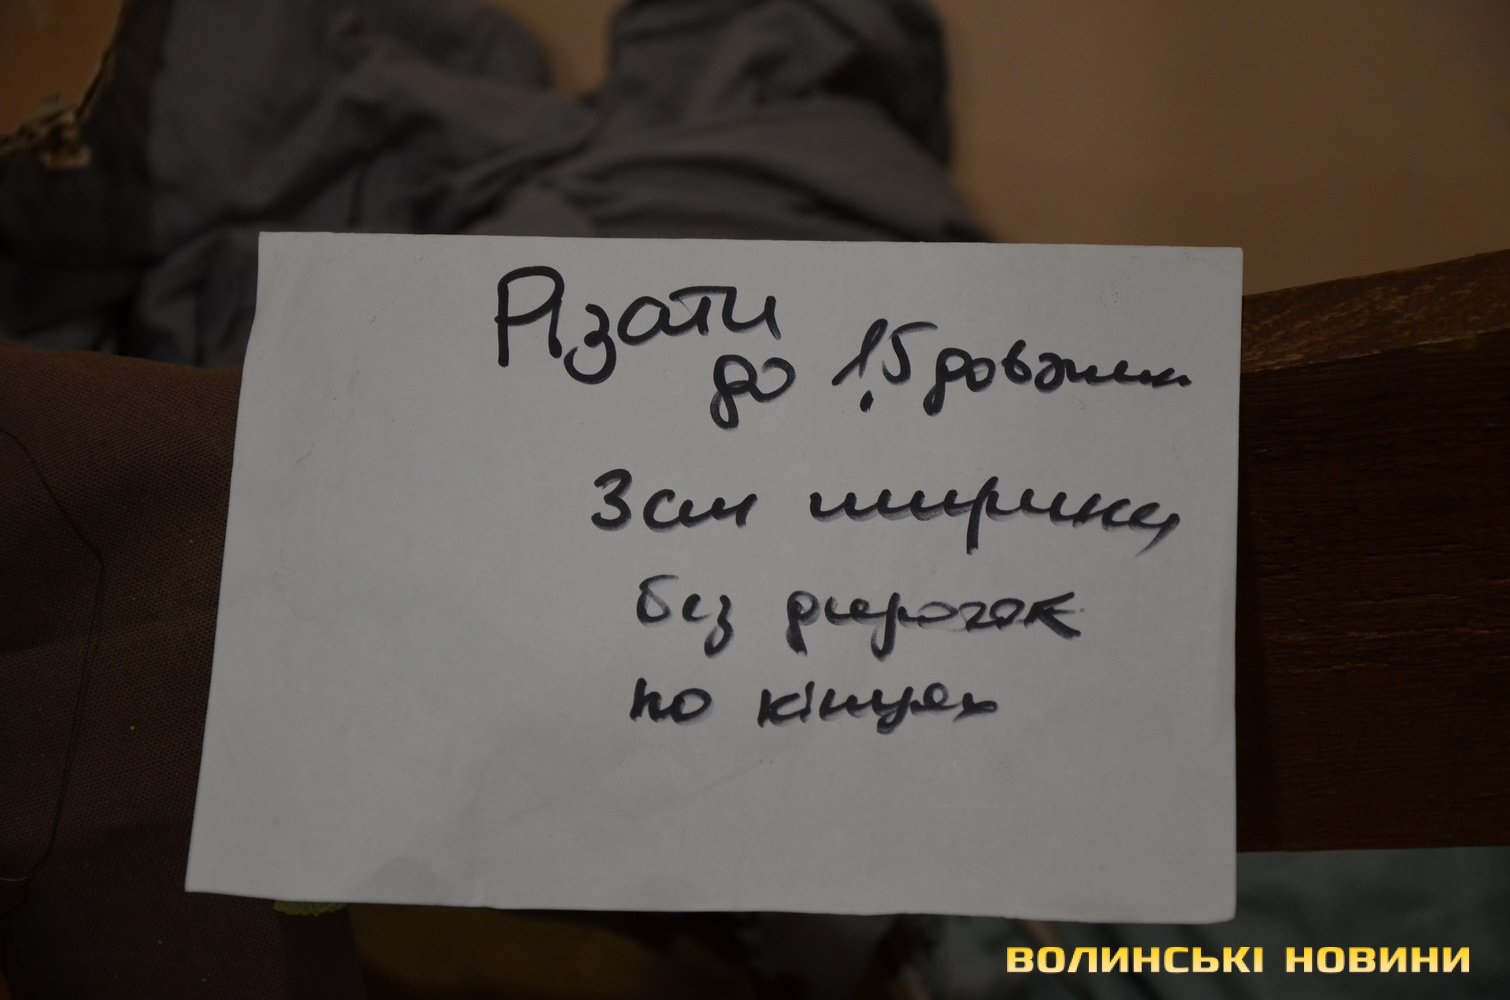 Різати
до 1.5 довжини
3 см ширину
без дирочок
по кінцях
ВОЛИНСЬКІ НОВИНИ